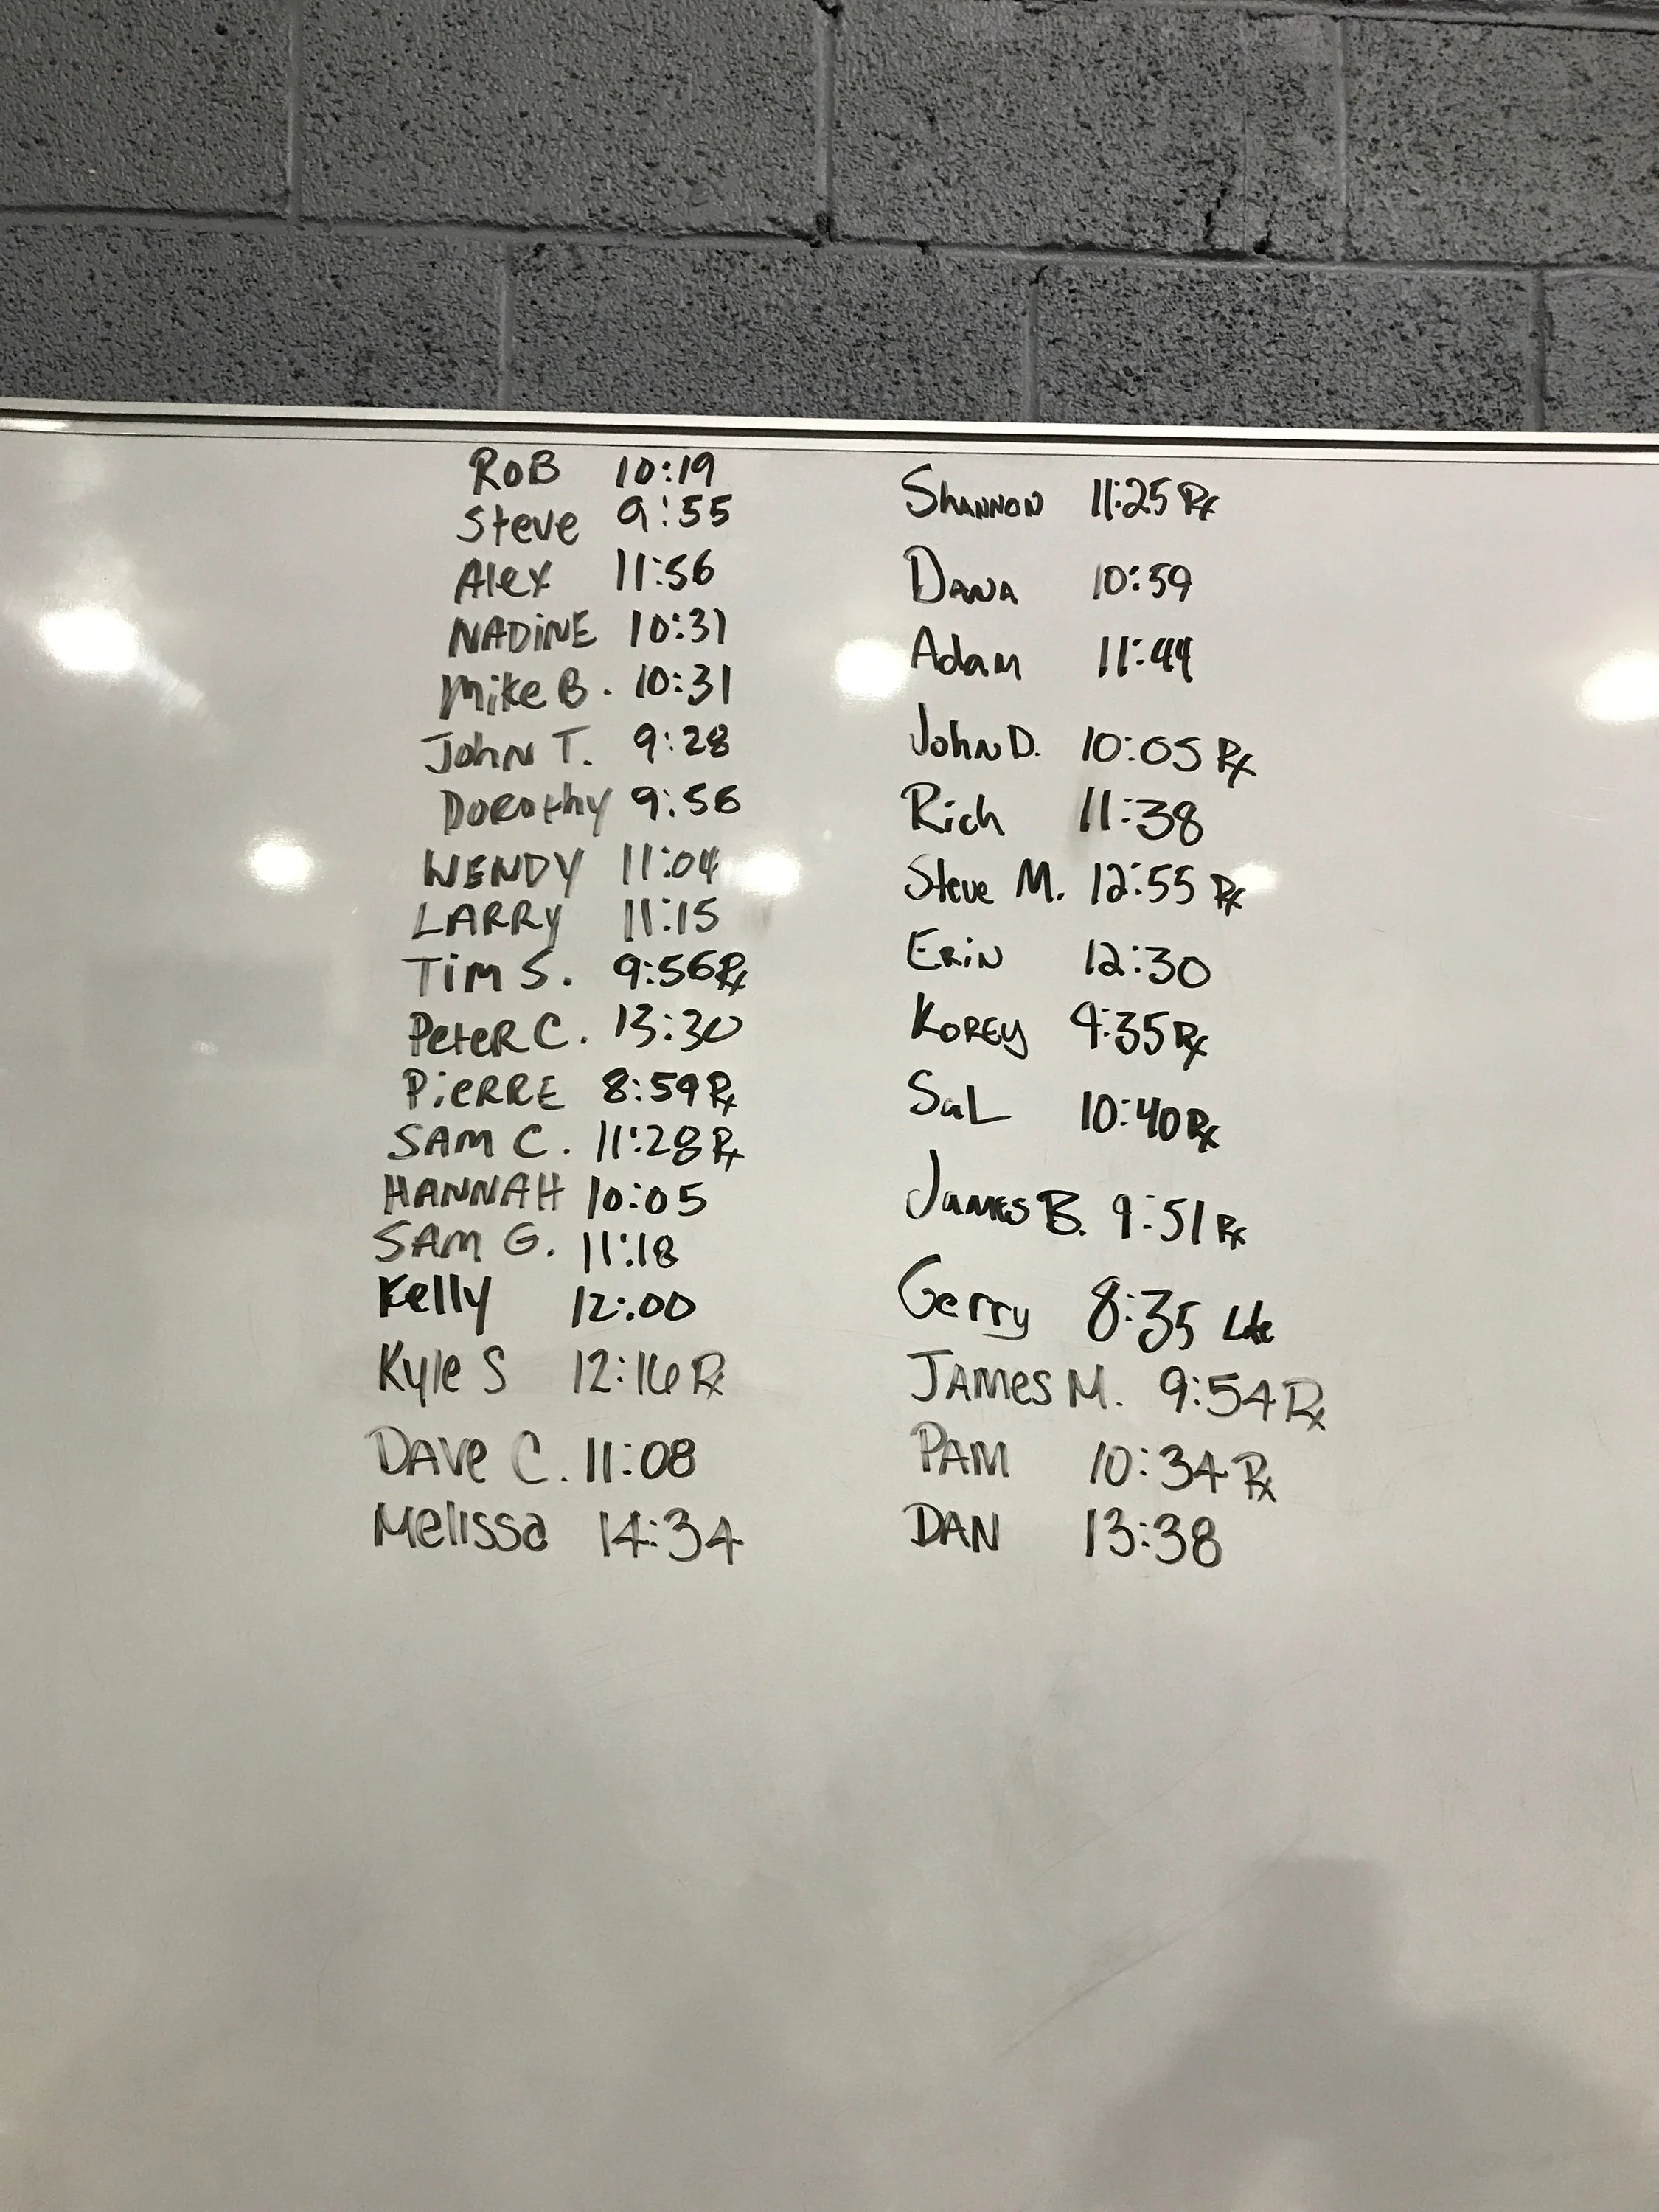 ROB 10:19
Steve 9:55
Alex 11:56
NADINE 10:31
Mike B. 10:31
John T. 9:28
Dorothy 9:56
WENDY 11:04
LARRY 11:15
TIM S. 9:56 Rx
PeteR C. 13:30
PiERRE 8:59 Rx
SAM C. 11:28 Rx
HANNAH 10:05
SAM G. 11:18
Kelly 12:00
Kyle S 12:16 Rx
DAVe C. 11:08
Melissa 14:34
SHANNON 11:25 Rx
DANA 10:59
Adam 11:44
John D. 10:05 Rx
Rich 11:38
Steve M. 12:55 Rx
ERIN 12:30
KOREY 9:35 Rx
SaL 10:40 Rx
JAMES B. 9:51 Rx
Gerry 8:35 Lite
JAMes M. 9:54 Rx
PAM 10:34 Rx
DAN 13:38